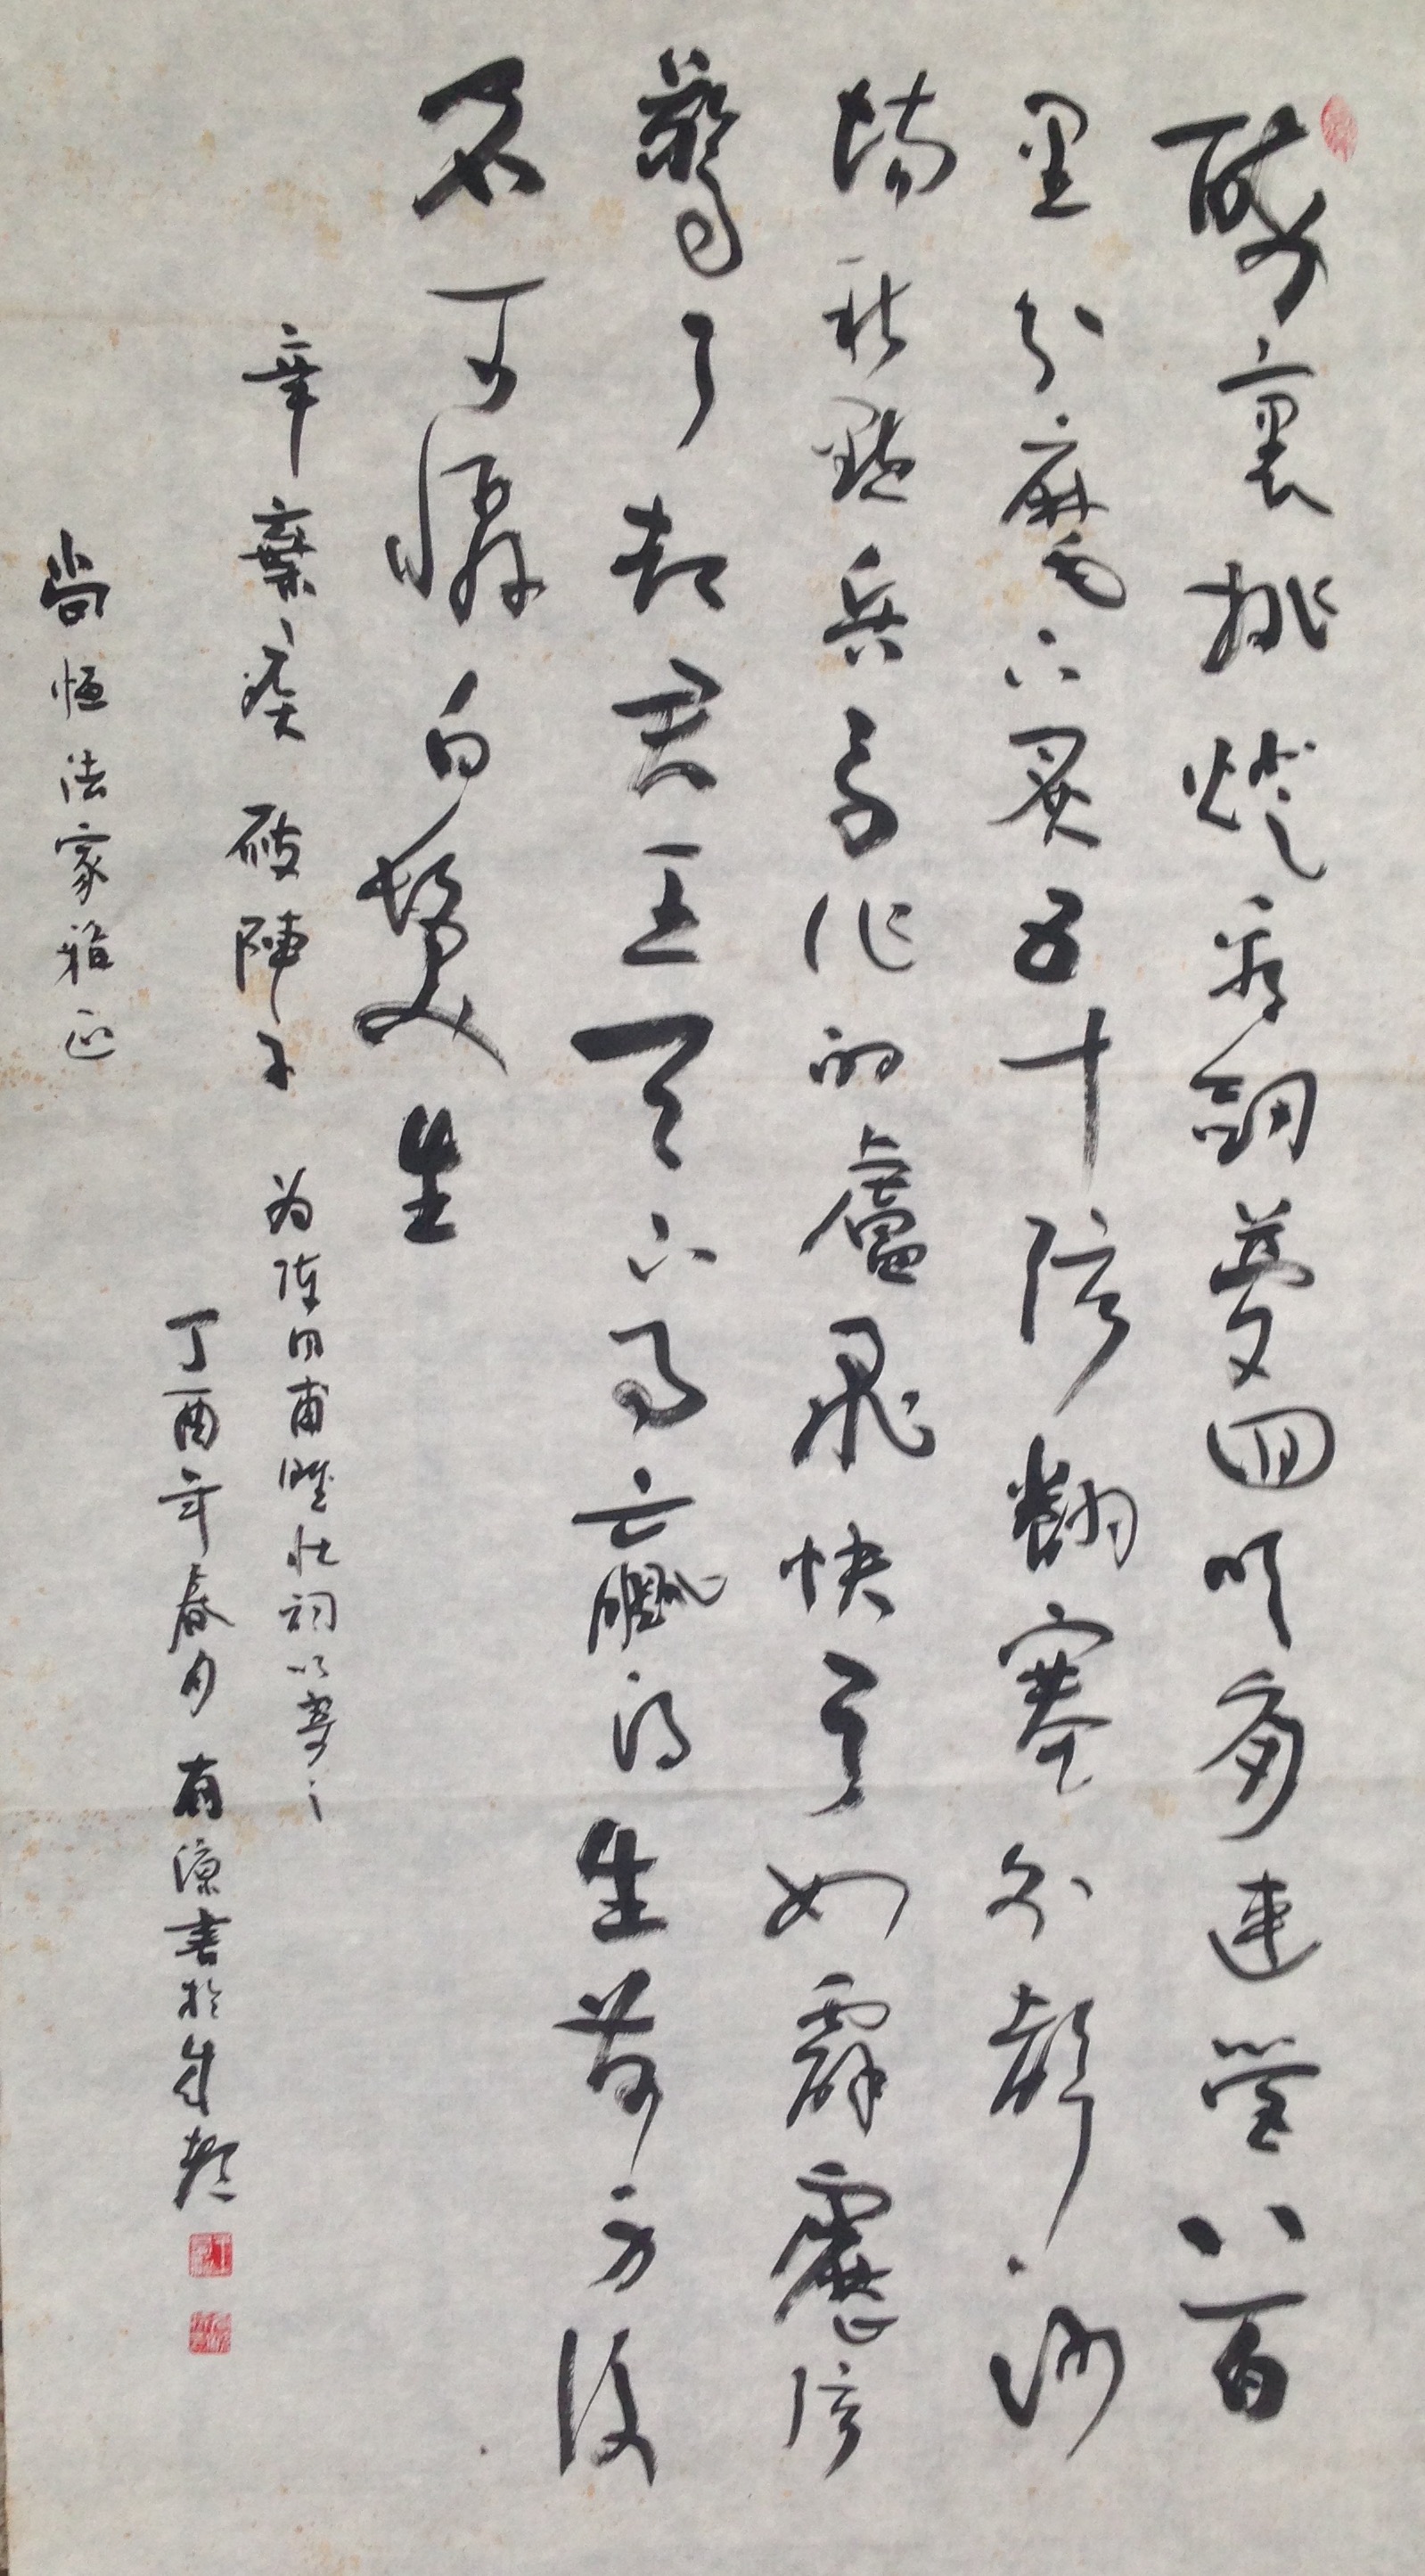 醉裏挑燈看劍夢回吹角連營八百
里分麾下炙五十弦翻塞外聲沙
場秋點兵馬作的盧飛快弓如霹靂弦
驚了却君王天下事贏得生前身後
名可憐白髮生
辛棄疾 破陣子 为陳同甫賦壯詞以寄之
丁酉年春月 有源書於成都
尚恒法家雅正